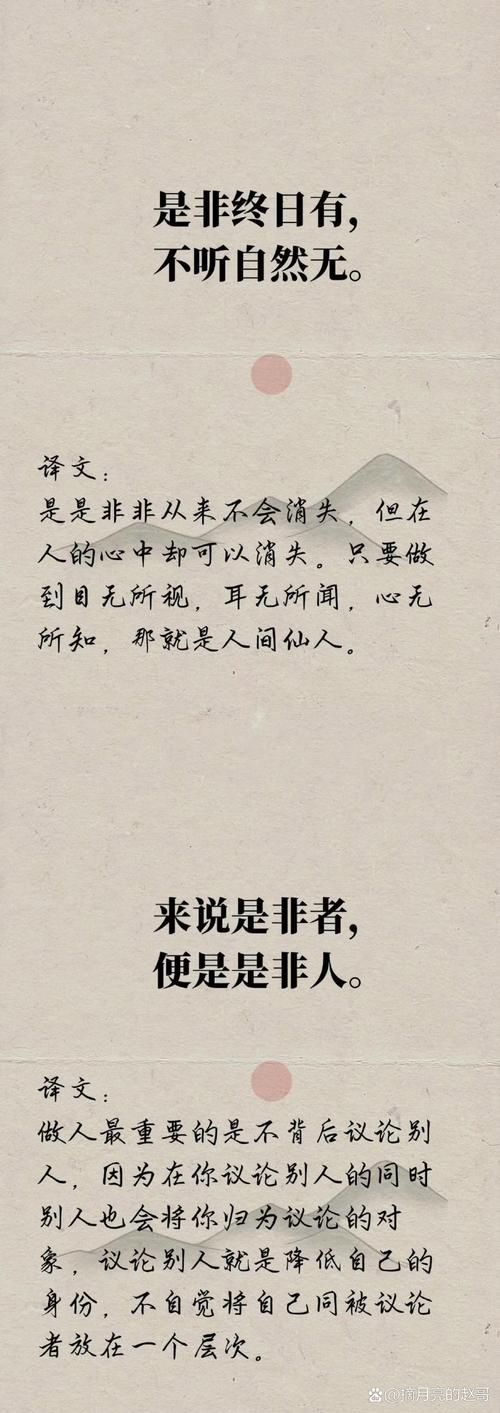 是非终日有，
不听自然无。
译文：
是是非非从来不会消失，但在
人的心中却可以消失。只要做
到目无所视，耳无所闻，心无
所知，那就是人间仙人。
来说是非者，
便是是非人。
译文：
做人最重要的是不背后议论别
人，因为在你议论别人的同时
别人也会将你归为议论的对
象，议论别人就是降低自己的
身份，不自觉将自己同被议论
者放在一个层次。
@摘月亮的赵哥